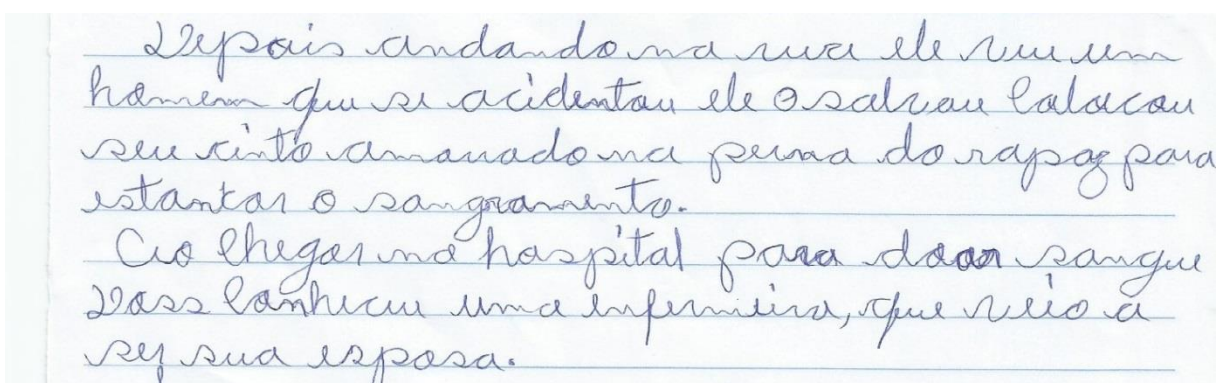 Depois andando na rua ele viu um
homem que se acidentou ele o salvou Colocou
seu cinto amarrado na perna do rapaz para
estancar o sangramento.
Ao Chegar no hospital para doar sangue
Doss Conheceu uma enfermeira, que veio a
ser sua esposa.